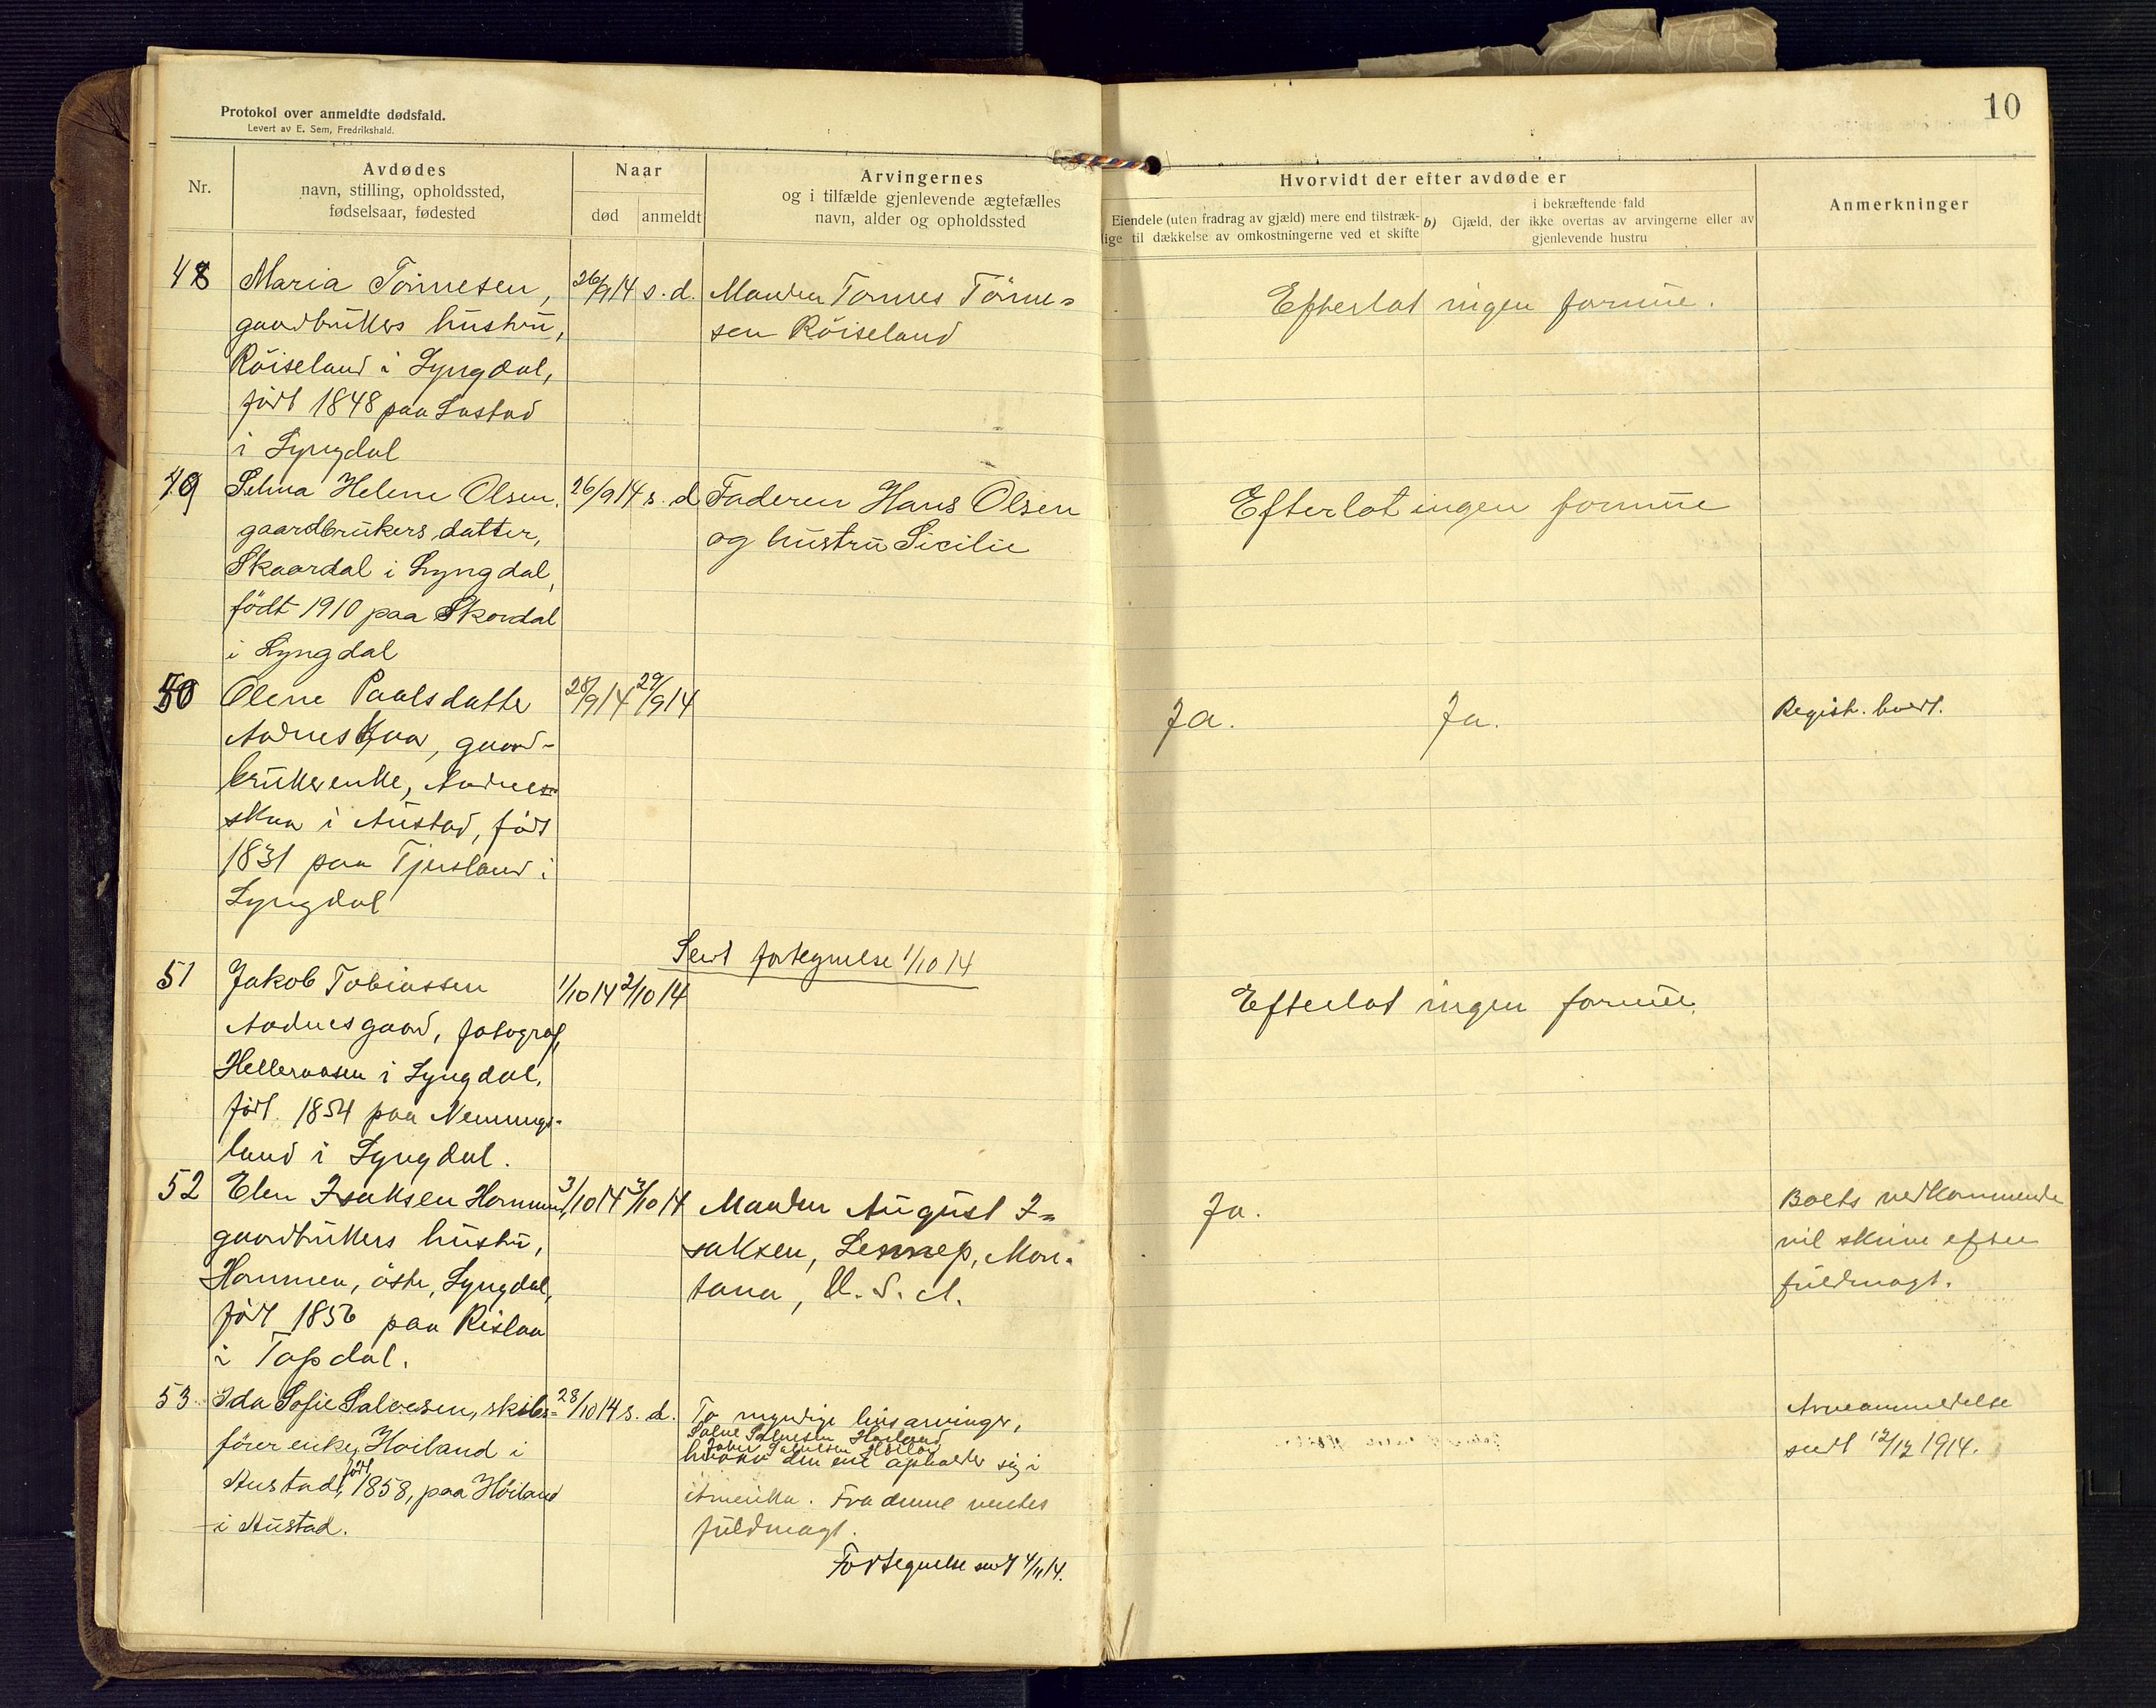 10
Protokol over anmeldte dødsfald.
Levert av E. Sem, Fredrikshald.
Nr.
Avdødes
navn, stilling, opholdssted,
fødselsaar, fødested
Naar
død
anmeldt
Arvingernes
og i tilfælde gjenlevende ægtefælles
navn, alder og opholdssted
Hvorvidt der efter avdøde er
Eiendele (uten fradrag av gjæld) mere end tilstræk-
lige til dækkelse av omkostningerne ved et skifte
b) Gjæld, der ikke overtas av arvingerne eller av
i bekræftende fald
gjenlevende hustru
Anmerkninger
48 Maria Tönnesen, 26/9 14 s. d. Manden Tönnes Tönne=
gaardbrukers hustru, sen Röiseland
Röiseland i Lyngdal,
født 1848 paa Lastad
i Lyngdal
Efterlot ingen formue.
49 Selma Helene Olsen, 26/9 14 s. d Faderen Hans Olsen
gaardbrukers datter, og hustru Sicilie
Skaardal i Lyngdal,
födt 1910 paa Skordal
i Lyngdal
Efterlot ingen formue
50 Olene Paalsdatter 28/9 14 29/9 14
Aadneskaa, gaard-
brukerenke, Aadnes-
skaa i Austad, födt
1831 paa Tjersland i
Lyngdal
Ja. Ja. Registr. bevt.
Sent fortegnelse 1/10 14
51 Jakob Tobiassen 1/10 14 2/10 14
Aadnesgaard, fotograf,
Hellevaasen i Lyngdal,
född 1854 paa Nennings-
land i Lyngdal.
Efterlot ingen formue.
52 Elen Isaksen Hommen, 3/10 14 3/10 14 Manden August I=
gaardbrukers hustru, saksen, Lennep, Mon-
Hommen, östre, Lyngdal, tana, U. S. A.
född 1856 paa Rislaa
i Topdal.
Ja.
Boets vedkommende
vil skrive efter
fuldmagt.
53 Ida Sofie Salvesen, skibs= 28/10 14 s. d. To myndige livsarvinger,
Salve Salvesen Høiland
förer enke, Höiland i hvorav den ene opholder sig i
Austad, född 1858, paa Höiland Amerika. Fra denne ventes
i Austad. fuldmagt.
Fortegnelse sendt 4/11 14.
Arveanmeldelse
sendt 12/12 1914.